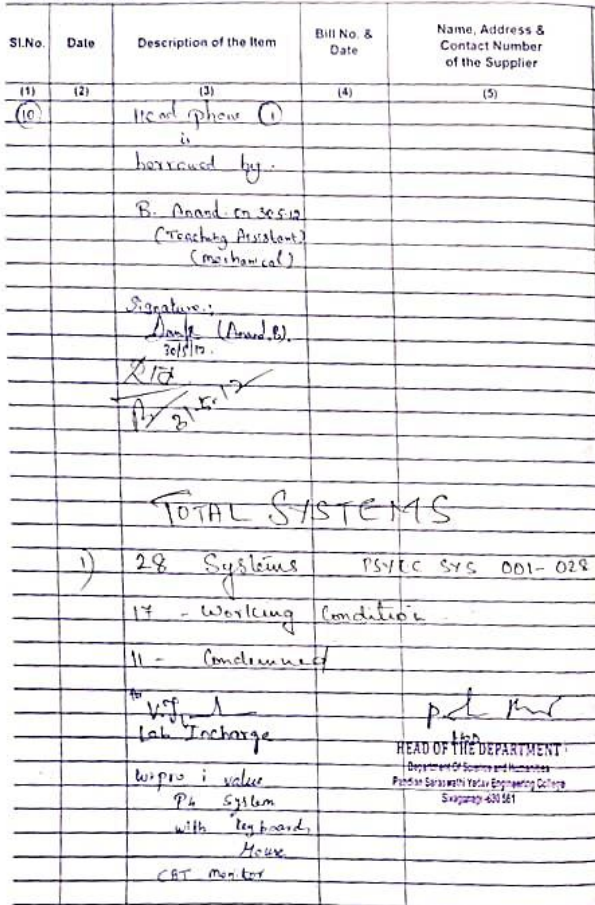 Sl.No. Date Description of the Item Bill No. & Date Name, Address & Contact Number of the Supplier
(1) (2) (3) (4) (5)
10 Head phone 1
is
borrowed by.
B. Anand on 30.5.12
(Teaching Assistant)
(Mechanical)
Signature:
(Anand.B).
30/5/12.
31.5.12
TOTAL SYSTEMS
1) 28 Systems PSYEC SYS 001-028
17 - Working Condition
11 - Condemned
Lab Incharge
HOD
HEAD OF THE DEPARTMENT
Department Of Science and Humanities
Pandian Saraswathi Yadav Engineering College
Sivagangai-630 561
Wipro i value
P4 System
with keyboard,
Mouse
CRT monitor